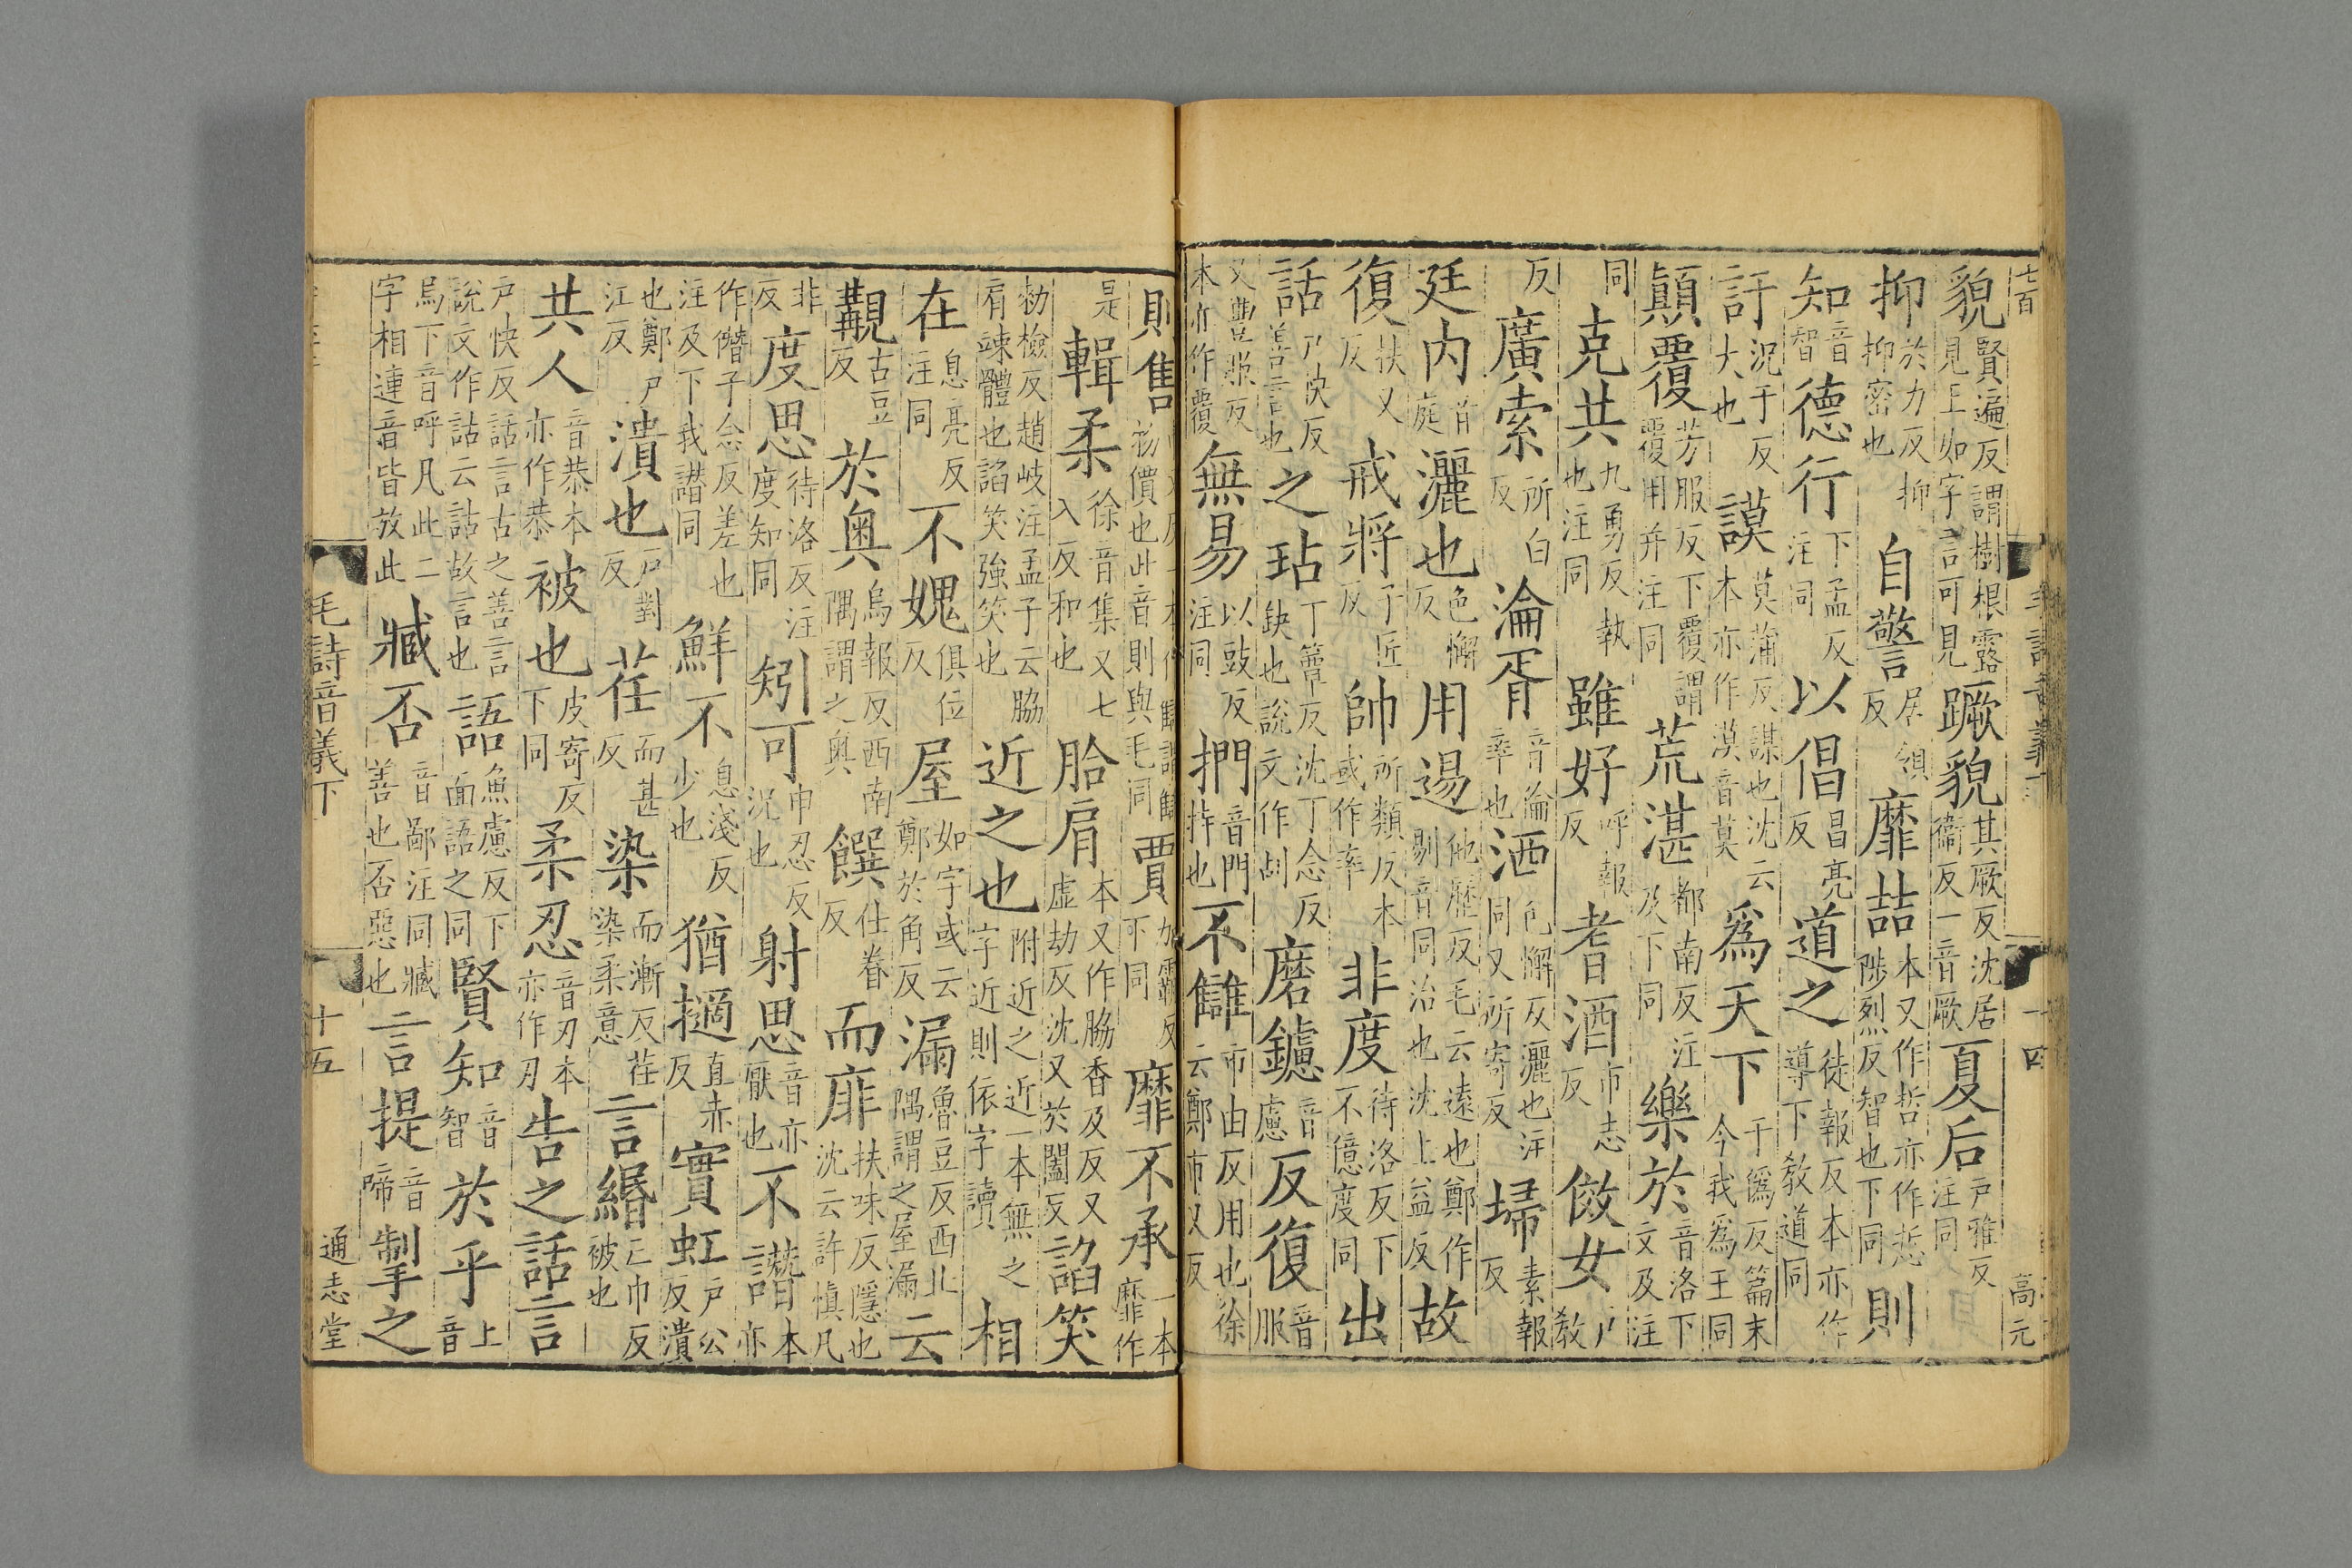 貌賢遍反謂樹根露見王如字言可見蹶貌其厥反沈居衞反一音厥夏后戸雅反注同
抑於力反抑抑密也自警居領反靡喆本又作哲亦作悊陟烈反智也下同則
知音智德行下孟反注同以倡昌亮反道之徒報反本亦作導下敎道同
訏況于反大也謨莫蒲反謀也沈云本亦作漠音莫爲天下于僞反篇末今我爲王同
顛覆芳服反下覆謂覆用并注同荒湛都南反注及下同樂於音洛下文及注
同克共九勇反執也注同雖好呼報反耆酒市志反傚女戸敎
反廣索所白反淪胥音淪率也洒色懈反灑也注同又所寄反埽素報反
廷内音庭灑也色懈反用逷他歷反毛云遠也鄭作剔音同治也沈上益反故
復扶又反戒將子匠反帥所類反本或作率非度待洛反下不億度同出
話戸快反善言也之玷丁簟反沈丁念反缺也說文作㓠磨鑢音慮反復音服
又豊服反本亦作覆無易以豉反注同捫音門持也不讎市由反用也徐云鄭市又反
則售物價也此音則與毛同賈加霸反下同靡不承一本靡作
是輯柔徐音集又七入反和也胎肩本又作脇香及反又虚劫反沈又於闔反諂笑
勑檢反趙岐注孟子云脇肩竦體也諂笑強笑也近之也附近之近一本無之字近則依字讀相
在息亮反注同不媿俱位反屋如字或云鄭於角反漏魯豆反西北隅謂之屋漏云
覯古豆反於奥烏報反西南隅謂之奥饌仕眷反而厞扶味反隱也沈云許愼凡
非反度思待洛反注度知同矧可申忍反況也射思音亦厭也不譖本亦
作僭子念反差也注及下我譖同鮮不息淺反少也猶擿直赤反實虹戸公反潰
也鄭戸江反潰也戸對反荏而甚反染而漸反荏染柔意言緡亡巾反被也
共人音恭本亦作恭被也皮寄反下同柔忍音刃本亦作刃告之話言
戸快反話言古之善言說文作詁云詁故言也語魚慮反下面語之同賢知音智於乎上音
烏下音呼凡此二字相連音皆放此臧否音鄙注同臧善也否惡也言提音啼掣之
毛詩音義下
十四
高元
毛詩音義下
十五
通志堂